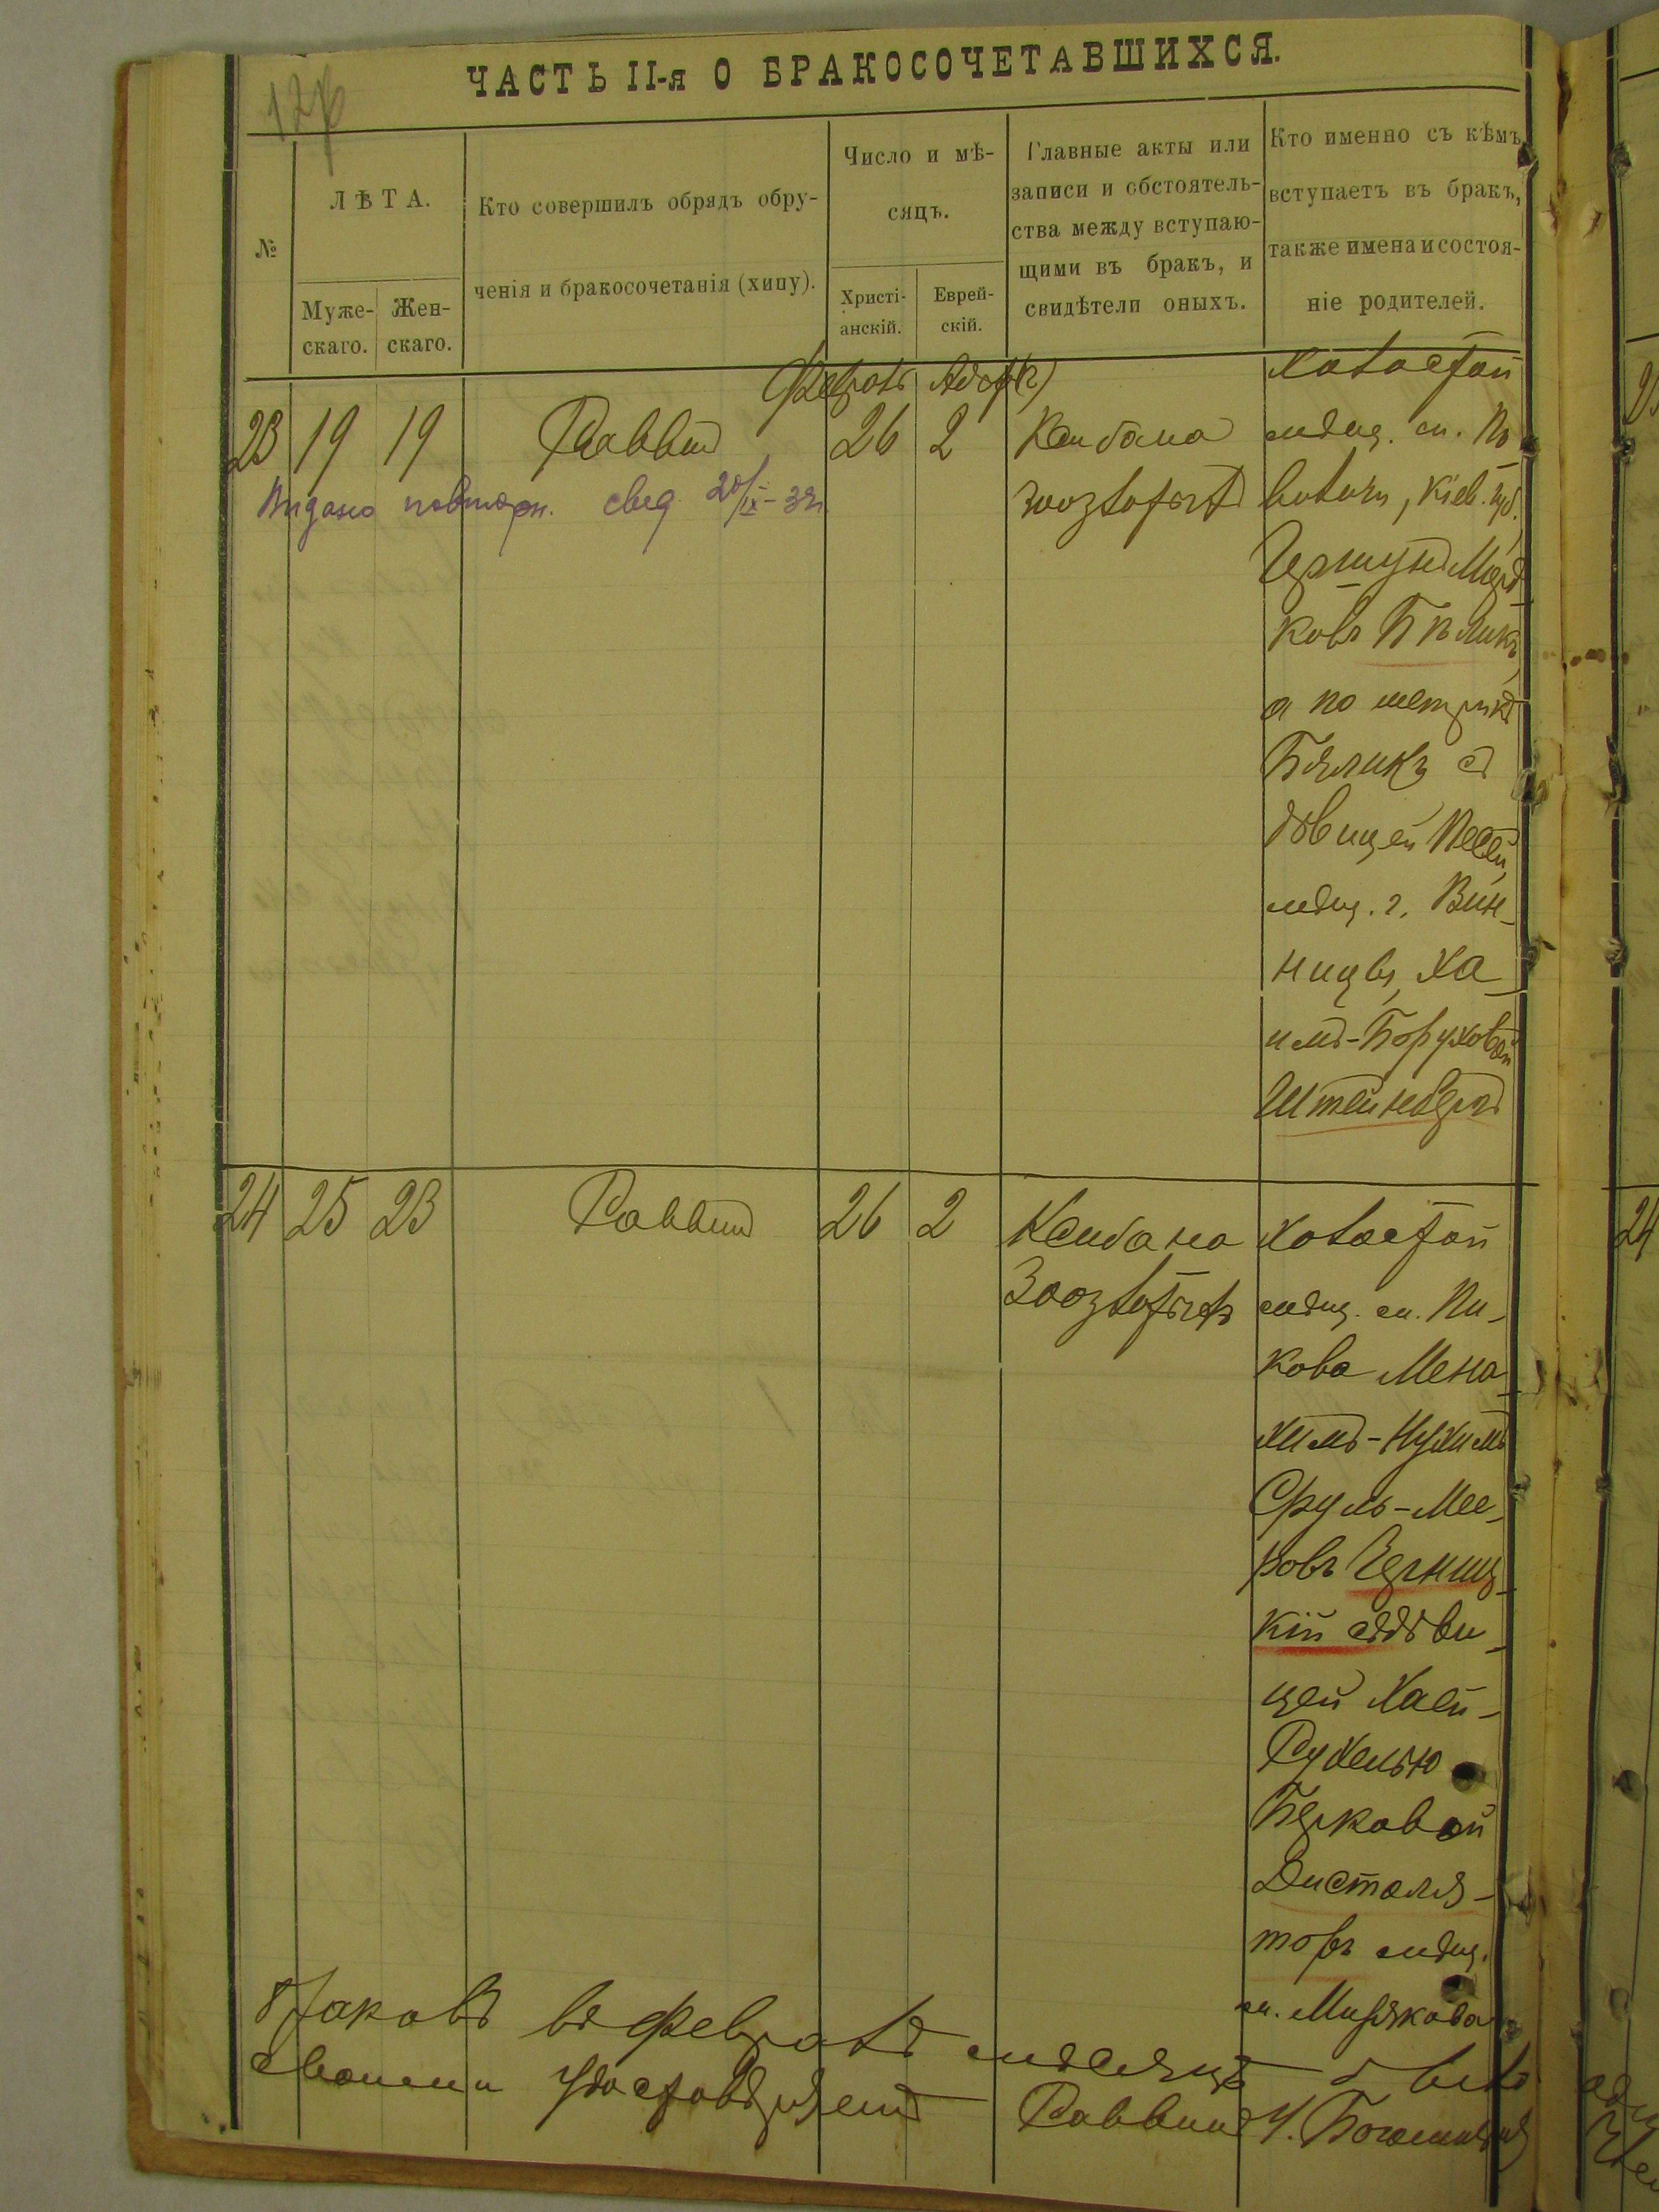 12
ЧАСТЬ II-я О БРАКОСОЧЕТАВШИХСЯ.
№
ЛѢТА.
Муже-
скаго.
Жен-
скаго.
Кто совершилъ обрядъ обру-
ченія и бракосочетанія (хипу).
Число и мѣ-
сяцъ.
Христі-
анскій.
Еврей-
скій.
Главные акты или
записи и обстоятель-
ства между вступаю-
щими въ бракъ, и
свидѣтели оныхъ.
Кто именно съ кѣмъ
вступаетъ въ бракъ,
также имена и состоя-
ніе родителей.
Февраль Адаръ
23 19 19 Раввинъ 26 2
Кситба на
Видано повторн. свид. 20/IX-32
Холостой
мѣщ. м. По
волочи, Кіев. губ.
Гершунъ Морд
ковъ Бѣликъ,
а по метрикѣ
Бяликъ съ
дѣвицей Песей,
мѣщ. г. Вин-
ницы, Ха-
имъ-Боруховой
Штейнбергъ
24 25 23 Раввинъ 26 2
Кситба на
Холостой
мѣщ. м. Пи-
кова Мена-
химъ-Нухимъ
Сруль-Мее-
ровъ Черниц-
кій съ дѣви-
цей Хаей-
Рухелью
Берковой
Дистолля-
торъ мѣщ.
м. Мизякова
браковъ въ февралѣ мѣсяцѣ было
удостовѣряемъ Раввинъ